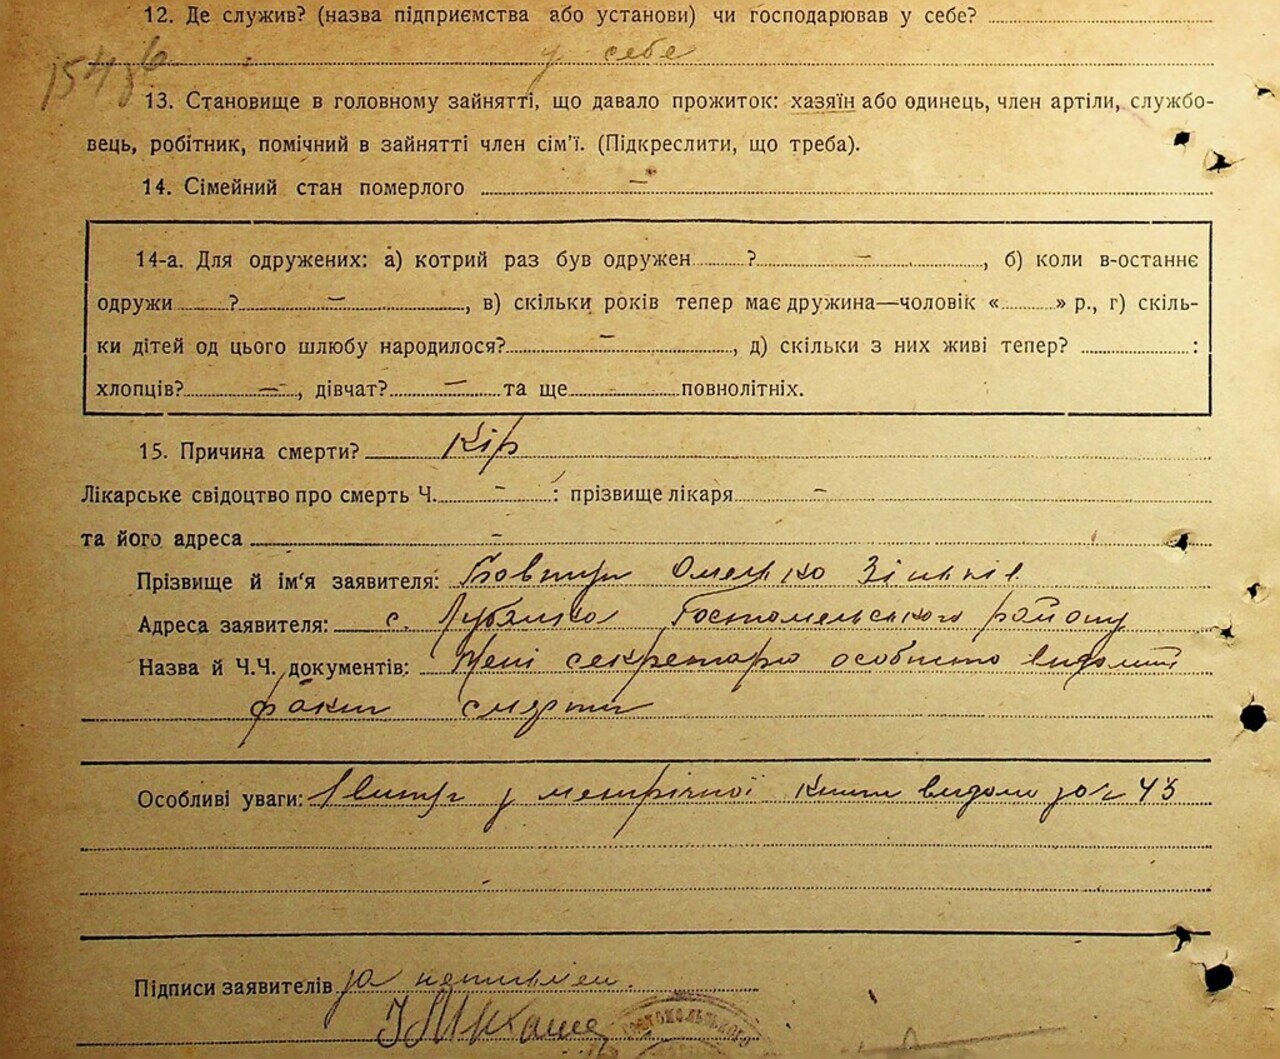 12. Де служив? (назва підприємства або установи) чи господарював у себе?
у себе
13. Становище в головному зайнятті, що давало прожиток: хазяїн або одинець, член артіли, службо-
вець, робітник, помічний в зайнятті член сім'ї. (Підкреслити, що треба).
14. Сімейний стан померлого –
14-а. Для одружених: а) котрий раз був одружен ? –, б) коли в-останнє
одружи ? –, в) скільки років тепер має дружина—чоловік « » р., г) скіль-
ки дітей од цього шлюбу народилося? –, д) скільки з них живі тепер? :
хлопців? –, дівчат? – та ще – повнолітніх.
15. Причина смерти? Кір
Лікарське свідоцтво про смерть Ч. – : прізвище лікаря –
та його адреса –
Прізвище й ім'я заявителя: Омелько
Адреса заявителя: с. Лубянка Гостомельського району
Назва й Ч.Ч. документів: Мені секретарю особисто видомий
факт смерти
Особливі уваги: у метричної книги видано за ч 43
Підписи заявителів за неписьмен.